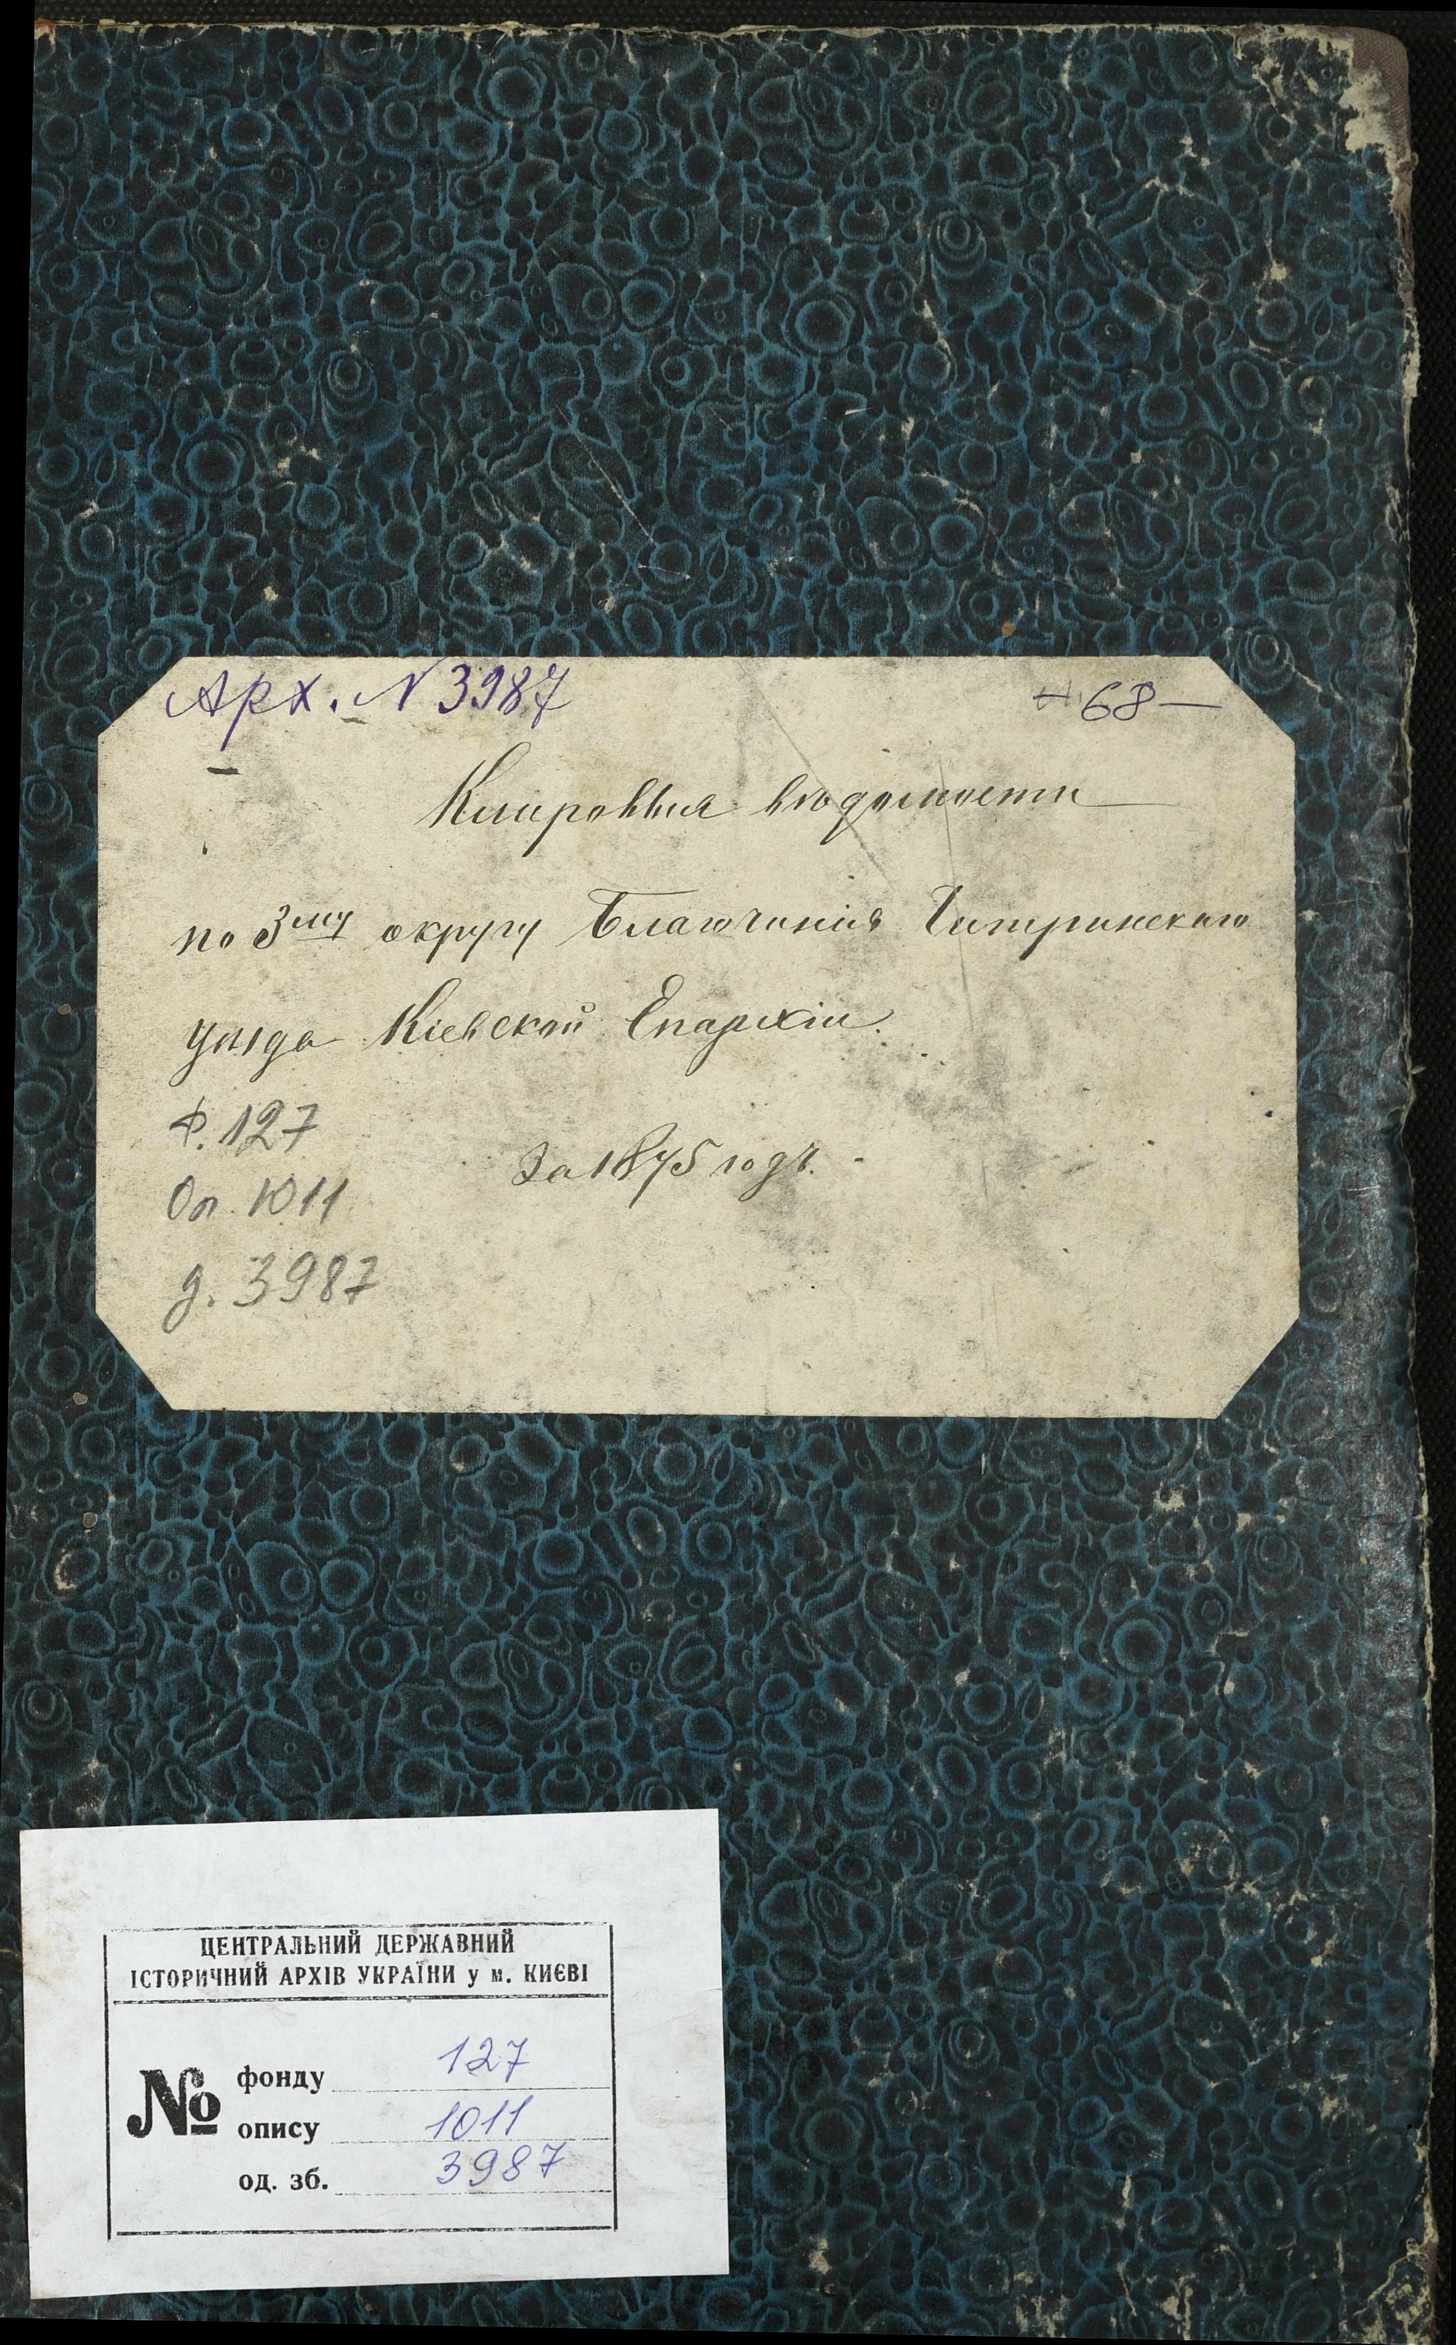 Арх. № 3987
68
Клировыя вѣдомости
по 3му округу Благочинія Чигринскаго
уѣзда Кіевской Епархіи.
Ф. 127
За 1875 годъ.
Оп. 1011
д. 3987
ЦЕНТРАЛЬНИЙ ДЕРЖАВНИЙ
ІСТОРИЧНИЙ АРХІВ УКРАЇНИ у м. КИЄВІ
№ фонду 127
опису 1011
од. зб. 3987